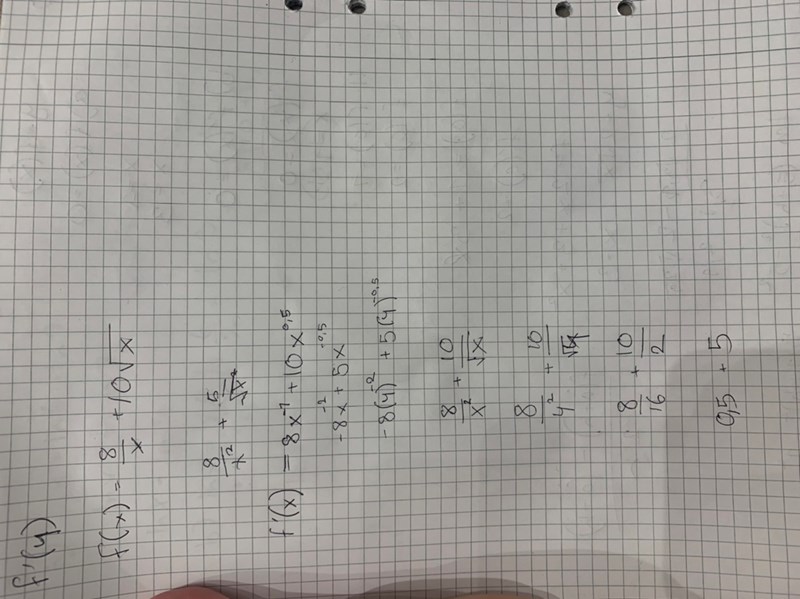 f'(4)
f(x) = 8/x + 10√x
8/x² + 5/√x
f'(x) = 8x⁻¹ + 10x^0,5
-8x⁻² + 5x^-0,5
-8(4)⁻² + 5(4)^-0,5
8/x² + 10/√x
8/4² + 10/√4
8/16 + 10/2
0,5 + 5